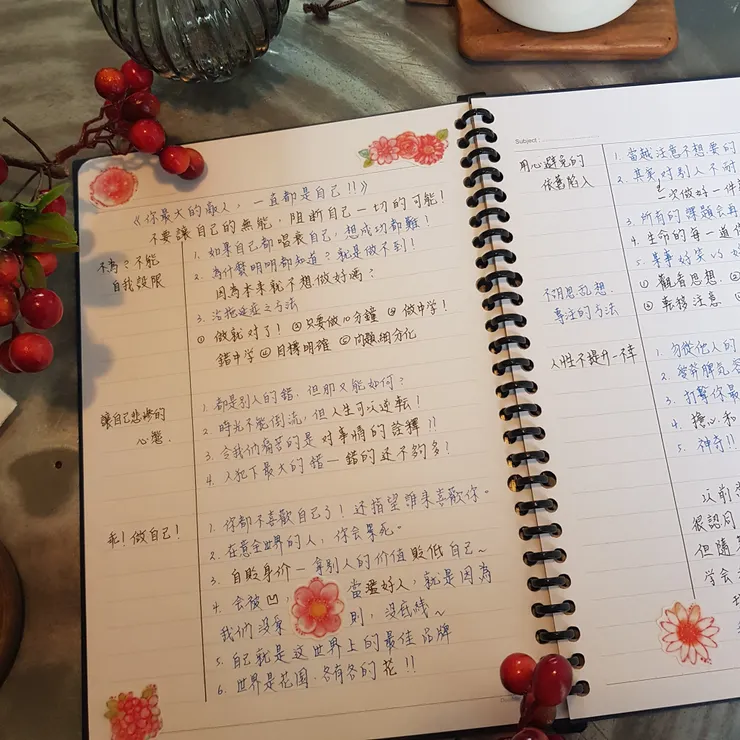 《你最大的敵人，一直都是自己!!》
不要讓自己的無能，阻斷自己一切的可能!
不為?不能
自我設限
1. 如果自己都唱衰自己，想成功都難!
2. 為什麼明明都知道?就是做不到!
因為本來就不想做好嗎?
3. 治拖延症之方法
① 做就對了! ②只要做10分鐘 ③ 做中學!
錯中學 ④ 目標明確 ⑤ 問題細分化
讓自己悲慘的
心態.
1. 都是別人的錯.但那又能如何?
2. 時光不能倒流,但人生可以逆轉!
3. 令我們痛苦的是 對事情的詮釋!!
4. 人犯下最大的錯—錯的还不夠多!
乖!做自己!
1. 你都不喜歡自己了!还指望誰來喜歡你。
2. 在意全世界的人，你会累死。
3. 自貶身价—拿別人的价值貶低自己~
4. 会被凹, 當濫好人，就是因為
我們沒 則，沒底線~
5. 自己就是这世界上的最佳品牌
6. 世界是花園.各有各的花!!
Subject:
用心避免的
依舊陷入
1. 當越注意不想要的
2. 其實对別人不耐
一次做好一件
3. 所有的課題会再
4. 生命的每一道
5. 某事好笑的
① 觀看思想.
② 転移注意
不胡思乱想.
專注的方法
人性不提升—不幸
1. 勿從他人的
2.
3. 打擊你最
4. 擔心.和
5. 神奇!!
以前
很認同
但隨
学会